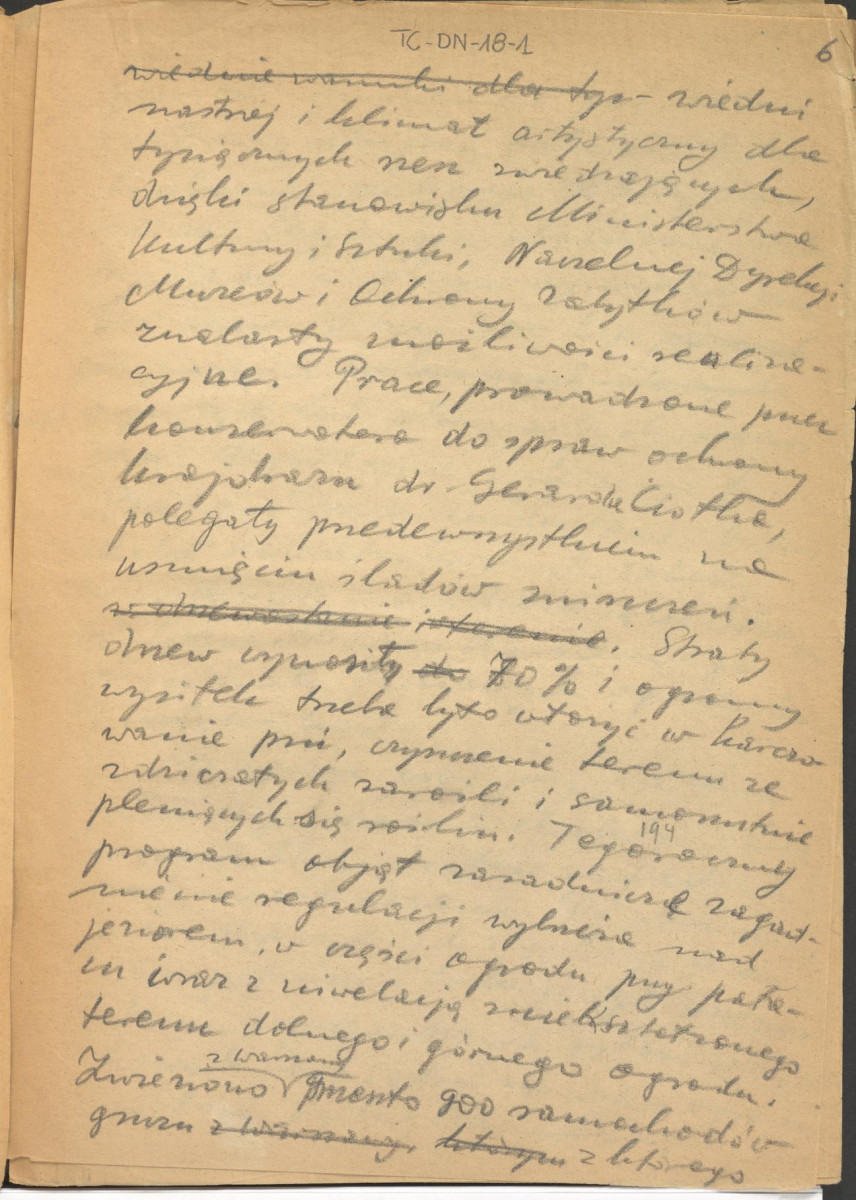 TC-DN-18-1
6
wiednie warunki dla typ- wiedni
nastrój i klimat artystyczny dla
tysiącznych rzesz zwiedzających,
dzięki stanowisku Ministerstwa
Kultury i Sztuki, Naczelnej Dyrekcji
Muzeów i Ochrony Zabytków
znalazły możliwości realiza-
cyjne. Prace, prowadzone przez
konserwatora do spraw ochrony
krajobrazu dr Gerarda Ciołka,
polegały przedewszystkiem na
usunięciu śladów zniszczeń.
w drzewostanie i terenie. Straty
drzew wynosiły do 70% i ogromny
wysiłek trzeba było włożyć w karczo-
wanie pni, czyszczenie terenu ze
zdziczałych zarośli i samorzutnie
pleniących się roślin. Tegoroczny
194
program objął zasadnicze zagad-
nienie regulacji wybrzeża nad
jeziorem, w części ogrodu przy pała-
cu wraz z niwelacją zniekształconego
terenu dolnego i górnego ogrodu.
z Warszawy
Zwieziono przeszło 900 samochodów
gruzu z Warszawy, którym z którego